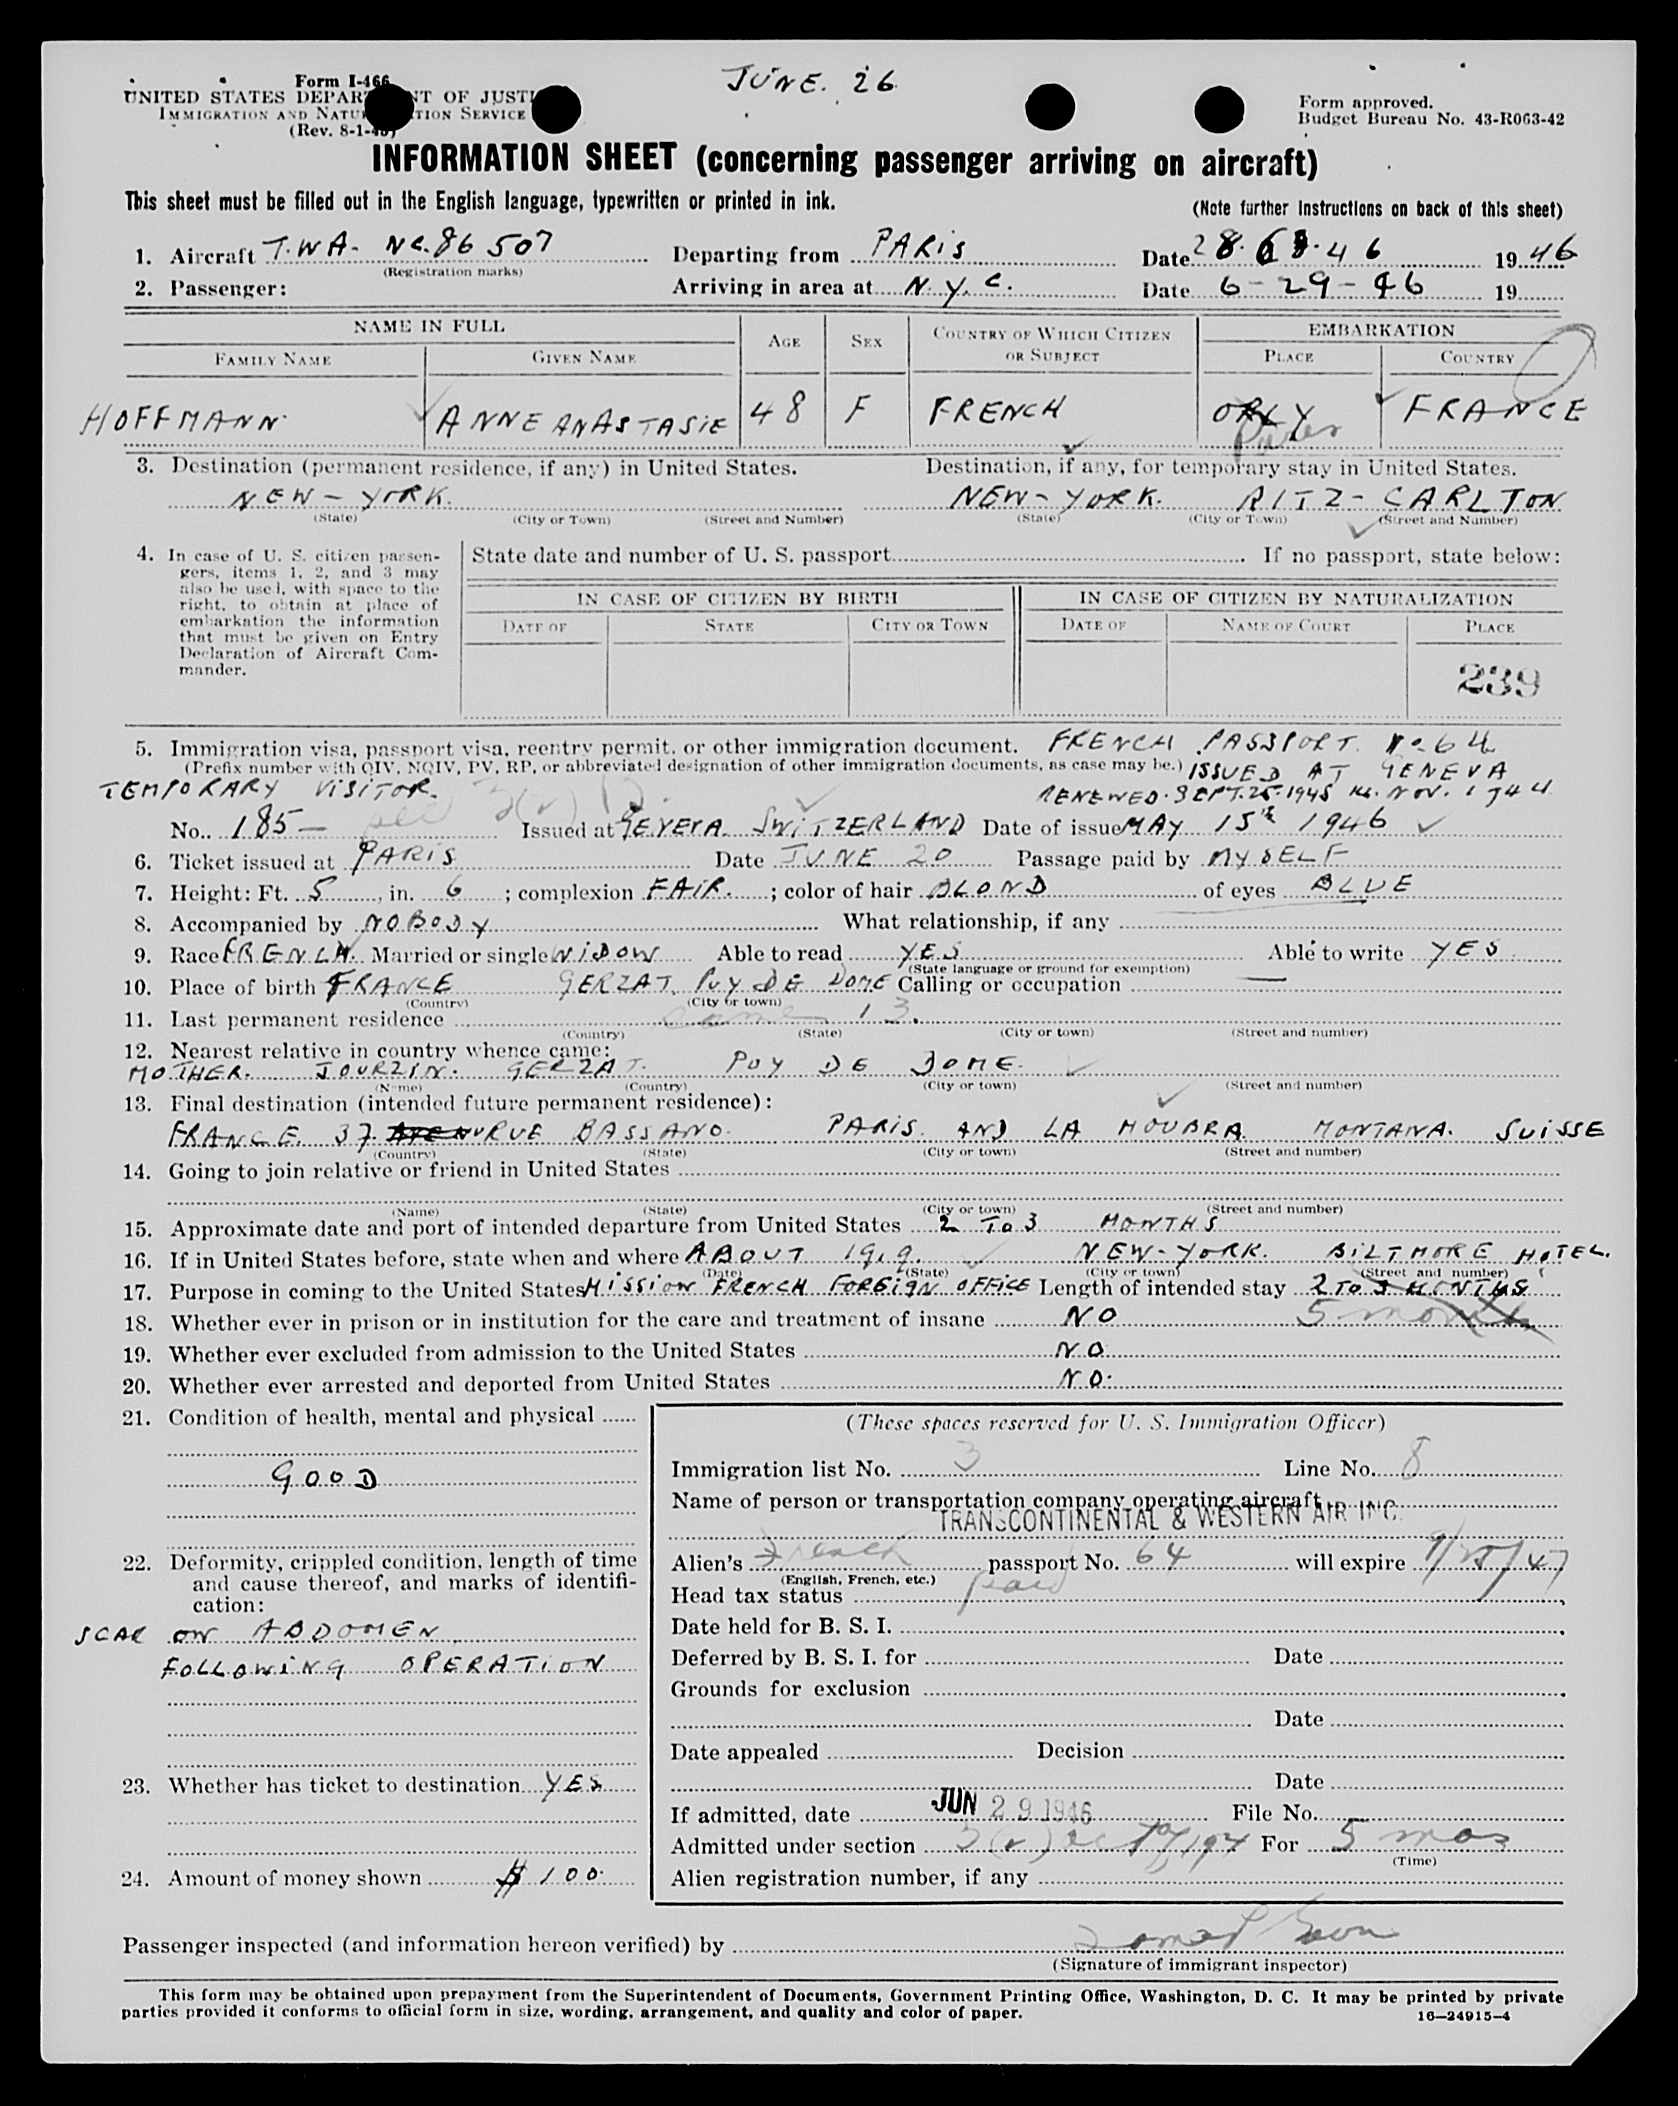 JUNE. 26
Form I-466
UNITED STATES DEPARTMENT OF JUSTICE
IMMIGRATION AND NATURALIZATION SERVICE
(Rev. 8-1-45)
Form approved.
Budget Bureau No. 43-R063-42
INFORMATION SHEET (concerning passenger arriving on aircraft)
This sheet must be filled out in the English language, typewritten or printed in ink.
(Note further instructions on back of this sheet)
1. Aircraft T.W.A. NC. 86 507 Departing from PARIS Date 28. 6. 46 1946
(Registration marks)
2. Passenger: Arriving in area at N.Y.C. Date 6-29-46 19
NAME IN FULL AGE SEX COUNTRY OF WHICH CITIZEN OR SUBJECT EMBARKATION
FAMILY NAME GIVEN NAME PLACE COUNTRY
HOFFMANN ANNE ANASTASIE 48 F FRENCH ORLY FRANCE
Paris
3. Destination (permanent residence, if any) in United States. Destination, if any, for temporary stay in United States.
NEW-YORK. NEW-YORK. RITZ-CARLTON
(State) (City or Town) (Street and Number) (State) (City or Town) (Street and Number)
4. In case of U. S. citizen passengers, items 1, 2, and 3 may also be used, with space to the right, to obtain at place of embarkation the information that must be given on Entry Declaration of Aircraft Commander.
State date and number of U. S. passport If no passport, state below:
IN CASE OF CITIZEN BY BIRTH IN CASE OF CITIZEN BY NATURALIZATION
DATE OF STATE CITY OR TOWN DATE OF NAME OF COURT PLACE
239
5. Immigration visa, passport visa, reentry permit, or other immigration document. FRENCH PASSPORT. No. 64
(Prefix number with QIV, NQIV, PV, RP, or abbreviated designation of other immigration documents, as case may be.) ISSUED AT GENEVA
TEMPORARY VISITOR. 3(2) RENEWED. SEPT. 25. 1945 NOV. 1944
No. 185- Issued at GENEVA SWITZERLAND Date of issue MAY 15th 1946
6. Ticket issued at PARIS Date JUNE 20 Passage paid by MYSELF
7. Height: Ft. 5, in. 6; complexion FAIR.; color of hair BLOND of eyes BLUE
8. Accompanied by NOBODY What relationship, if any
9. Race FRENCH. Married or single WIDOW Able to read YES Able to write YES
(State language or ground for exemption)
10. Place of birth FRANCE GERZAT. PUY DE DOME Calling or occupation —
(Country) (City or town)
11. Last permanent residence same 13.
(Country) (State) (City or town) (Street and number)
12. Nearest relative in country whence came:
MOTHER. JOURZIN. GERZAT. PUY DE DOME.
(Name) (Country) (City or town) (Street and number)
13. Final destination (intended future permanent residence):
FRANCE. 37 RUE BASSANO. PARIS. AND LA MOUBRA. MONTANA. SUISSE
(Country) (State) (City or town) (Street and number)
14. Going to join relative or friend in United States
(Name) (State) (City or town) (Street and number)
15. Approximate date and port of intended departure from United States 2 TO 3 MONTHS
16. If in United States before, state when and where ABOUT 1919. NEW-YORK. BILTMORE HOTEL.
(Date) (State) (City or town) (Street and number)
17. Purpose in coming to the United States MISSION FRENCH FOREIGN OFFICE Length of intended stay 2 TO 3 MONTHS
18. Whether ever in prison or in institution for the care and treatment of insane NO 5 months
19. Whether ever excluded from admission to the United States NO.
20. Whether ever arrested and deported from United States NO.
21. Condition of health, mental and physical
GOOD
22. Deformity, crippled condition, length of time and cause thereof, and marks of identification:
SCAR ON ABDOMEN
FOLLOWING OPERATION
23. Whether has ticket to destination YES
24. Amount of money shown $ 100.
(These spaces reserved for U. S. Immigration Officer)
Immigration list No. 3 Line No. 8
Name of person or transportation company operating aircraft
TRANSCONTINENTAL & WESTERN AIR INC.
Alien's French passport No. 64 will expire 9/25/47
(English, French, etc.)
Head tax status paid
Date held for B. S. I.
Deferred by B. S. I. for Date
Grounds for exclusion
Date
Date appealed Decision
Date
If admitted, date JUN 29 1946 File No.
Admitted under section 3(2) For 5 mos
(Time)
Alien registration number, if any
Passenger inspected (and information hereon verified) by
(Signature of immigrant inspector)
This form may be obtained upon prepayment from the Superintendent of Documents, Government Printing Office, Washington, D. C. It may be printed by private
parties provided it conforms to official form in size, wording, arrangement, and quality and color of paper.
16—24915-4